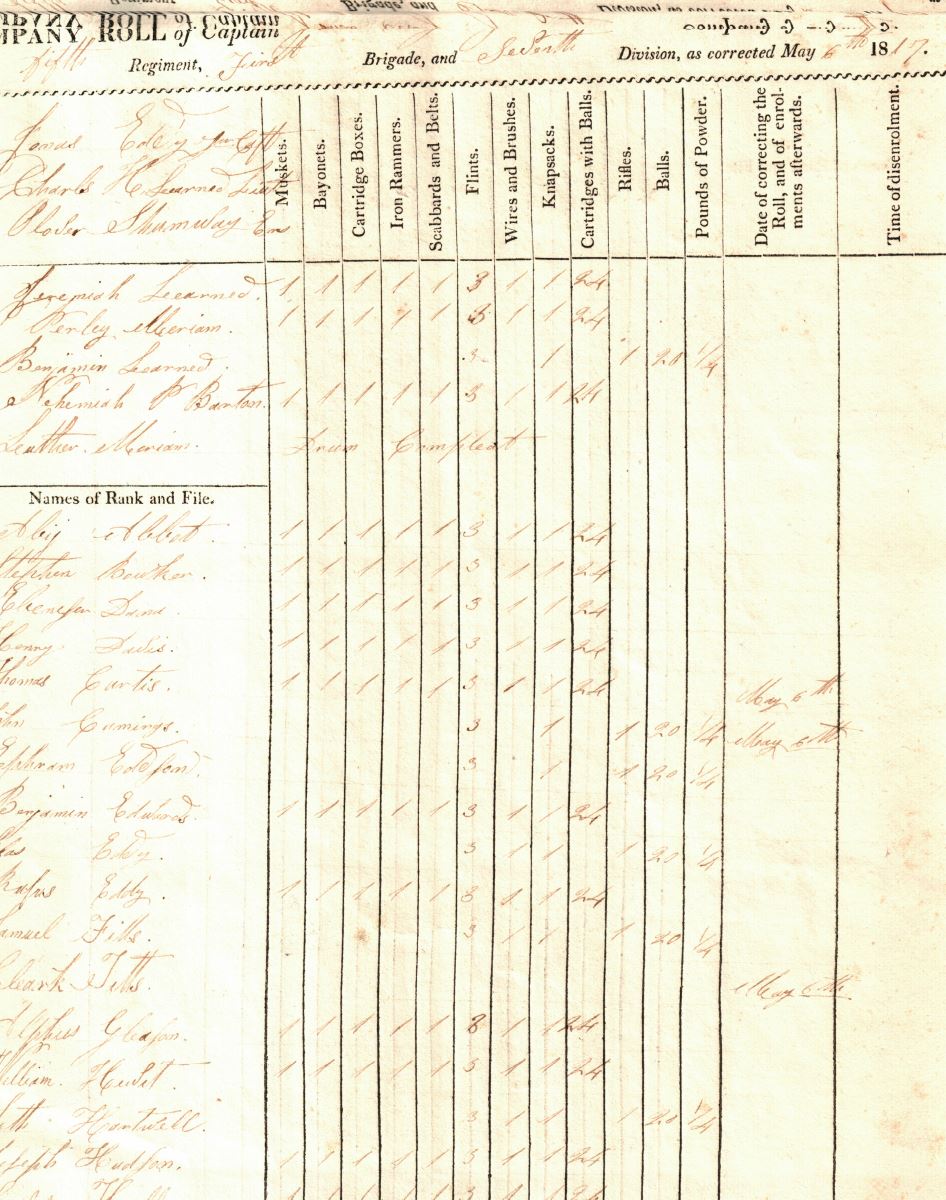 COMPANY ROLL of Captain
fifth Regiment, First Brigade, and Seventh Division, as corrected May 6th 1817.
Muskets. Bayonets. Cartridge Boxes. Iron Rammers. Scabbards and Belts. Flints. Wires and Brushes. Knapsacks. Cartridges with Balls. Rifles. Balls. Pounds of Powder. Date of correcting the Roll, and of enrolments afterwards. Time of disenrolment.
Jonas Eddy Jun Capt
Charls H. Learned Lieut
Shumway Ens
Jeremiah Learned. 1 1 1 1 1 3 1 1 24
Perley Meriam. 1 1 1 1 1 3 1 1 24
Benjamin Learned. 3 1 1 20 1/4
Nehemiah P Barton. 1 1 1 1 1 3 1 1 24
Leuther Meriam. Drum Compleat
Names of Rank and File.
Abbott. 1 1 1 1 1 3 1 1 24
Stephen Bowker. 1 1 1 1 1 3 1 1 24
Ebenezer Dana. 1 1 1 1 1 3 1 1 24
Henry Davis. 1 1 1 1 1 3 1 1 24
Thomas Curtis. 1 1 1 1 1 3 1 1 24 May 6th
John Cumings. 3 1 1 20 1/4 May 6th
Ephram 3 1 1 20 1/4
Benjamin Edwards. 1 1 1 1 1 3 1 1 24
Eddy. 3 1 1 1 20 1/4
Rufus Eddy. 1 1 1 1 1 3 1 1 24
Samuel Fitts. 3 1 1 1 20 1/4
Clark Fitts. May 6th
Alpheus Gleason. 1 1 1 1 1 3 1 1 24
William. 1 1 1 1 1 3 1 1 24
Hartwell. 3 1 1 1 20 1/4
Joseph Hudson. 1 1 1 1 1 3 1 1 24